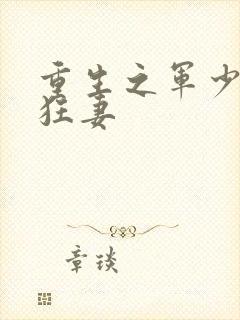 重生之军少
狂妻
章琰